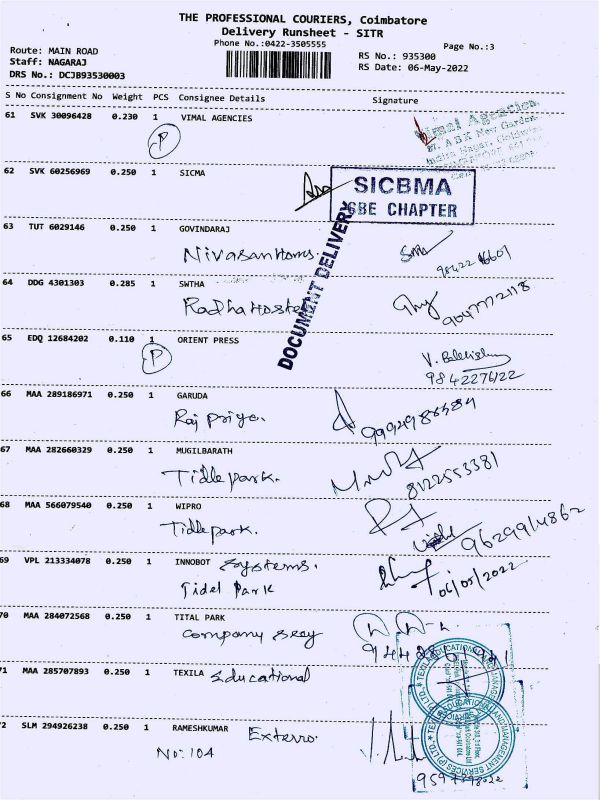 THE PROFESSIONAL COURIERS, Coimbatore
Delivery Runsheet - SITR
Phone No.:0422-3505555
Page No.:3
Route: MAIN ROAD
Staff: NAGARAJ
DRS No.: DCJB93530003
RS No.: 935300
RS Date: 06-May-2022
S No Consignment No Weight PCS Consignee Details Signature
61 SVK 30096428 0.230 1 VIMAL AGENCIES
P
Vimal Agencies
62 SVK 60256969 0.250 1 SICMA
SICBMA
GBE CHAPTER
DOCUMENT DELIVERY
63 TUT 6029146 0.250 1 GOVINDARAJ
Nivasan Homs.
64 DDG 4301303 0.285 1 SWTHA
Radha Hoste
9047772118
65 EDQ 12684202 0.110 1 ORIENT PRESS
P
9842276122
66 MAA 289186971 0.250 1 GARUDA
Raj priya.
67 MAA 282660329 0.250 1 MUGILBARATH
Tidle park.
8122553381
68 MAA 566079540 0.250 1 WIPRO
Tidle park.
9629914862
69 VPL 213334078 0.250 1 INNOBOT Systems.
Tidel Park
06/05/2022
70 MAA 284072568 0.250 1 TITAL PARK
Company Secy
71 MAA 285707893 0.250 1 TEXILA Educational
72 SLM 294926238 0.250 1 RAMESHKUMAR Exterro.
No: 104